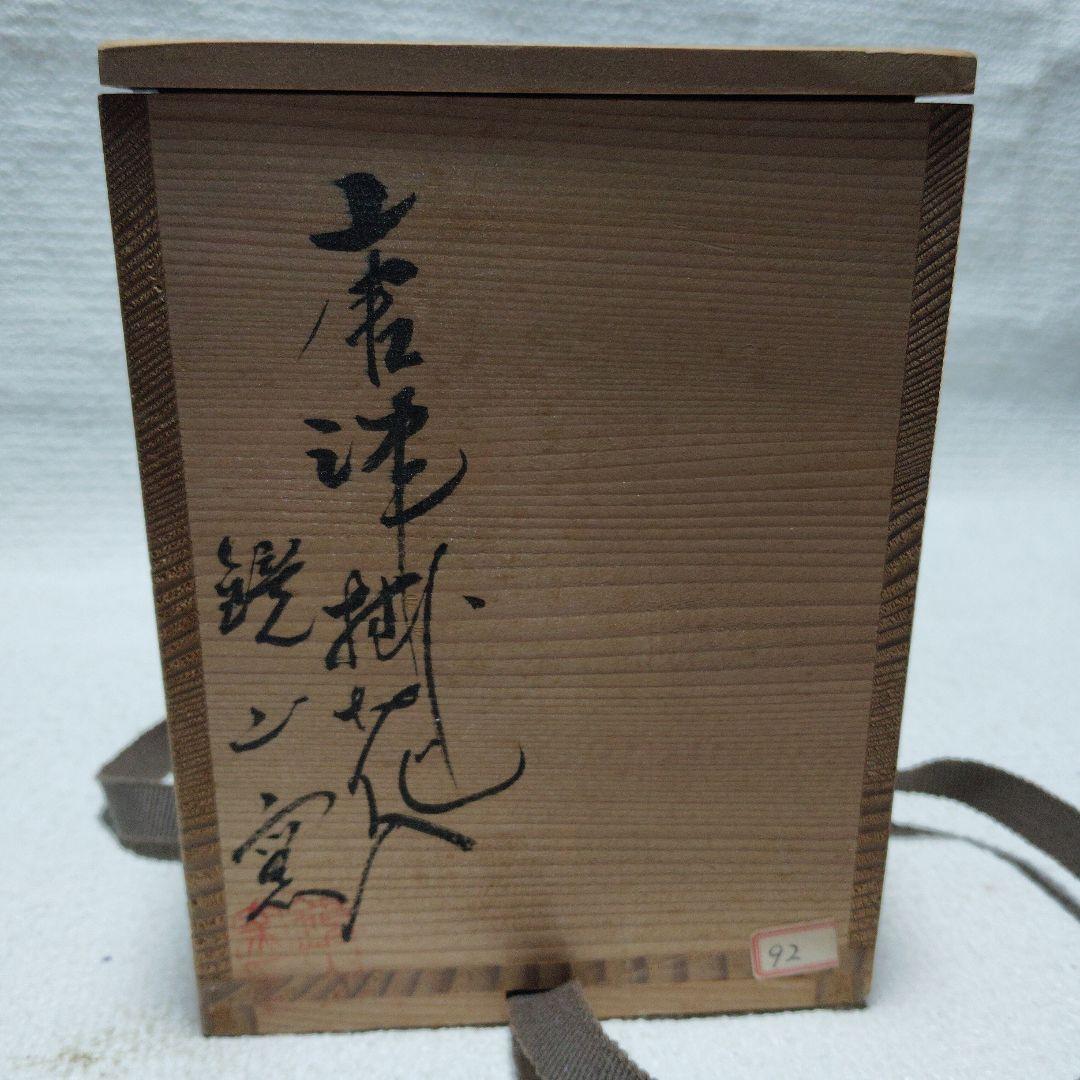 唐津掛花入
鏡山窯
92